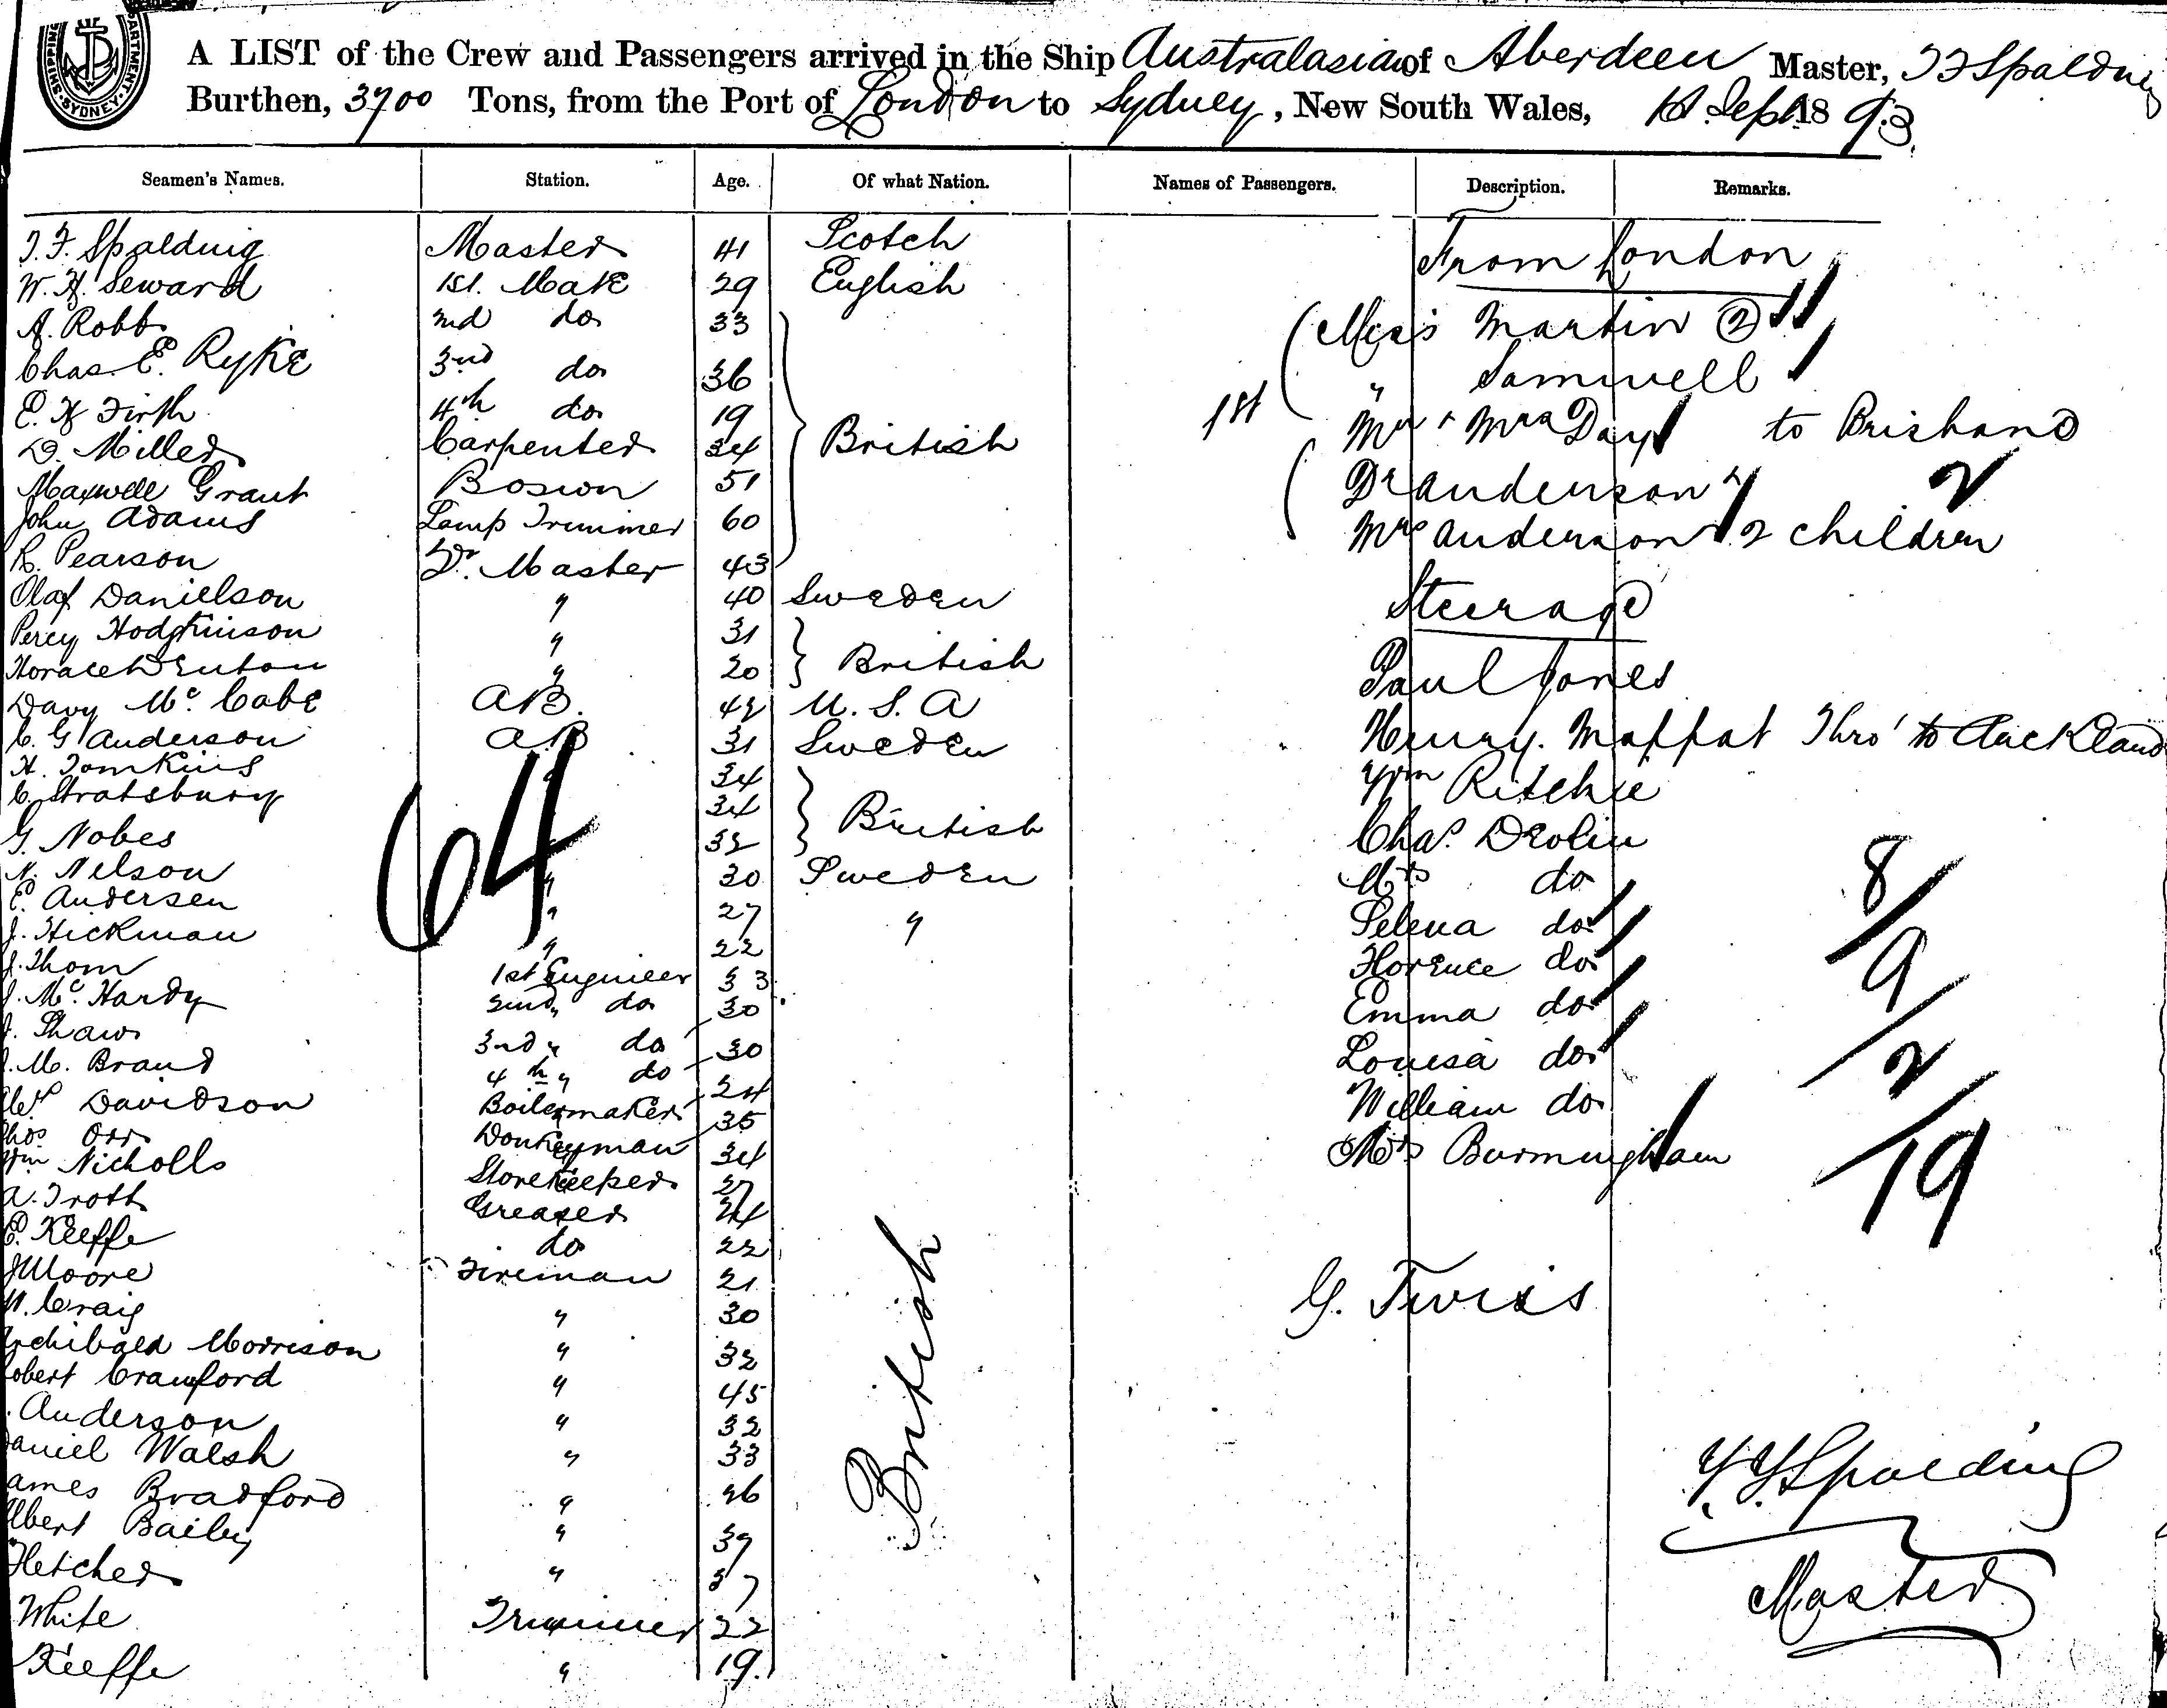 SHIPPING DEPARTMENT SYDNEY
A LIST of the Crew and Passengers arrived in the Ship Australasian of Aberdeen Master, T F Spalding
Burthen, 3700 Tons, from the Port of London to Sydney, New South Wales, 1st Sept 1893.
Seamen's Names. Station. Age. Of what Nation. Names of Passengers. Description. Remarks.
T. F. Spalding Master 41 Scotch
From London
W. H. Seward 1st. Mate 29 English
A. Robb 2nd do 33
Miss Martin 2
Chas. E. Ryke 3rd do 36
" Samwell
1st
E. H Firth 4th do 19
Mr & Mrs Day to Brisbane
D. Miller Carpenter 34 British
Maxwell Grant Bosion 51
Dr Anderson 2
John Adams Lamp Trimmer 60
Mrs Anderson 2 children
R. Pearson Qr. Master 43
Olaf Danielson " 40 Sweden
Steerage
Percy Hodgkinson " 31
Horace Denton " 20 British
Paul Jones
Davy Mc. Cabe AB. 42 U. S. A
C. G Anderson AB 31 Sweden
Henry. Moffat Thro' to Auckland
H. Tomkins " 34
Wm Ritchie
C. Stratsbury 34
64
G. Nobes 32 British
Chas. Deolin
N. Nelson " 30 Sweden
Mrs do 8
E. Andersen " 27 "
Selena do
J. Hickman " 22
Florence do 9
J. Thom 1st Engineer 33
J. Mc. Hardy 2nd " do 30
Emma do
J. Shaw 3rd " do 30
Louisa do 2
J. M. Brand 4th " do 24
William do
Alex Davidson Boilermaker 35
Thos Orr Donkeyman 34
Mrs Burmingham 19
Wm Nicholls Storekeeper 27
A. Troth Greaser 24
E. Keeffe do 22
J Moore Fireman 21
G. Twiss
W. Craig " 30
Archibald Morrison " 32
Robert Crawford " 45
British
Anderson " 32
Daniel Walsh " 33
T. F. Spalding
James Bradford " 26
Albert Bailey " 39
Fletcher " 37
Master
White Trimmer 22
Keeffe " 19.